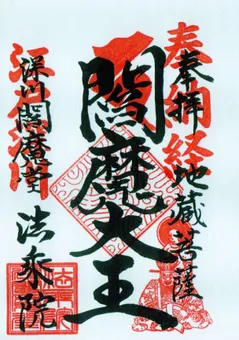 奉納経
奉拝 地蔵菩薩
閻魔大王
深川閻魔堂
法乗院